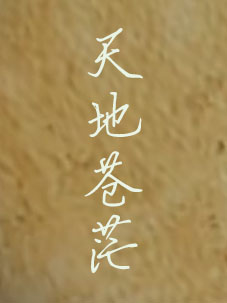 天地苍茫